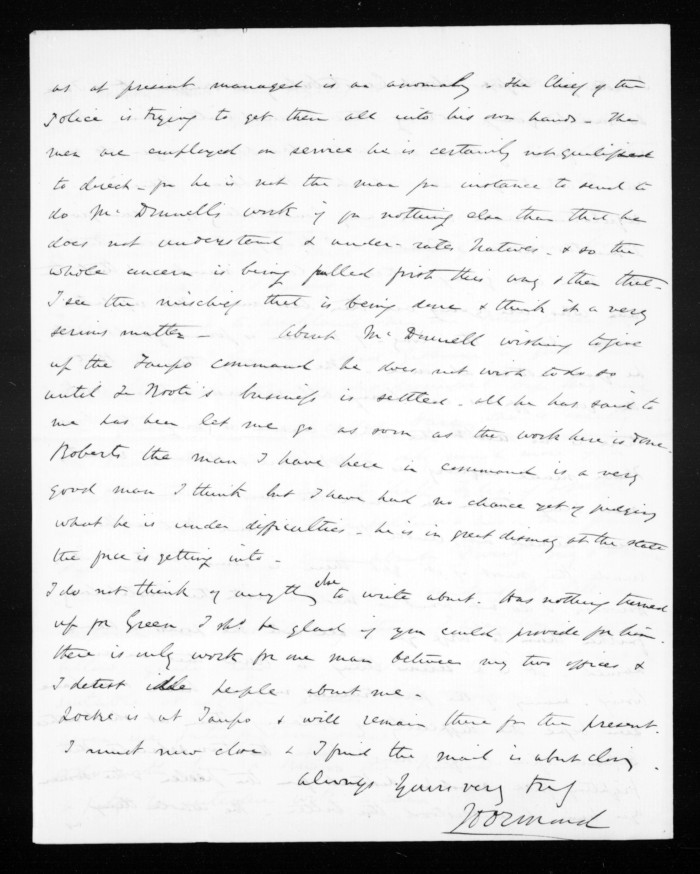 as at present managed is an anomaly - the Chief of the
Police is trying to get them all into his own hands - the
men are employed on service he is certainly not qualified
to direct - for he is not the man for instance to send to
do McDonnell's work if for nothing else than that he
does not understand & under-rates Natives - & so the
whole concern is being pulled first this way & then that -
I see the mischief that is being done & think it a very
serious matter - About McDonnell wishing to give
up the Taupo command he does not wish to do so
until Te Kooti's business is settled - all he has said to
me has been let me go as soon as the work here is done.
Roberts the man I have here in command is a very
good man I think but I have had no chance yet of judging
what he is under difficulties - he is in great dismay at the state
the force is getting into -
I do not think of anything else to write about. Has nothing turned
up for Green I shd. be glad if you could provide for him.
there is only work for one man between my two offices &
I detest idle people about me -
Locke is at Taupo & will remain there for the present.
I must now close as I find the mail is about closing.
Always Yours very truly
JD Ormond